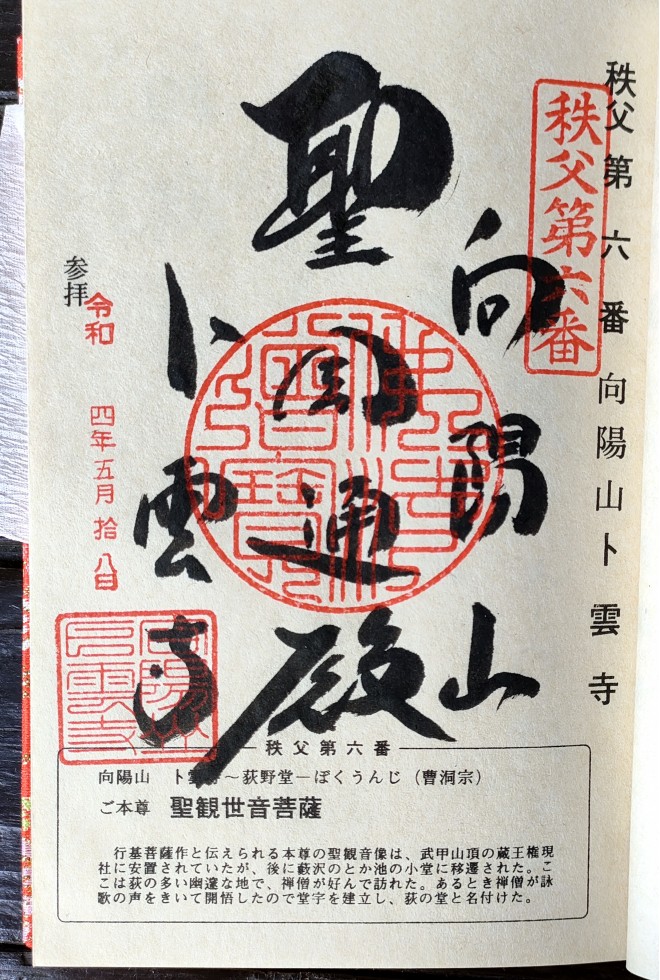 秩父第六番 向陽山卜雲寺
秩父第六番
向陽山
聖
圓通殿
卜雲寺
参拝
令和 四年五月拾八日
秩父第六番
向陽山 卜雲寺～荻野堂－ぼくうんじ（曹洞宗）
ご本尊 聖観世音菩薩
行基菩薩作と伝えられる本尊の聖観音像は、武甲山頂の蔵王権現
社に安置されていたが、後に藪沢のとか池の小堂に移遷された。こ
こは荻の多い幽邃な地で、禅僧が好んで訪れた。あるとき禅僧が詠
歌の声をきいて開悟したので堂宇を建立し、荻の堂と名付けた。